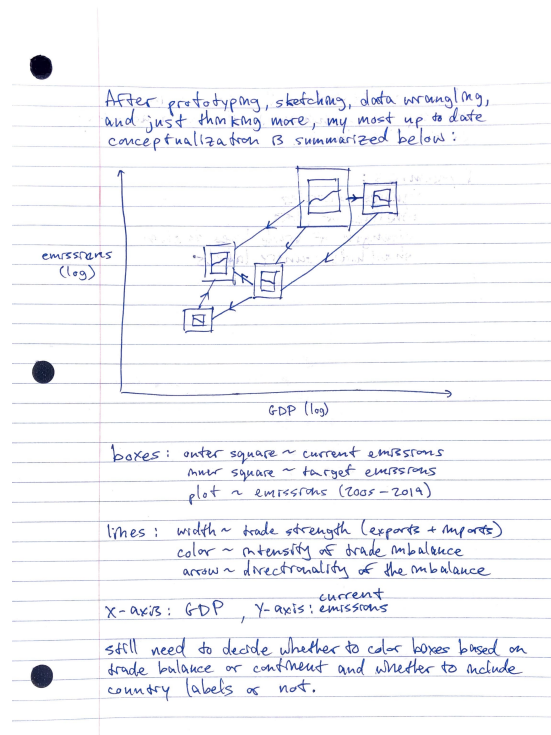 After prototyping, sketching, data wrangling,
and just thinking more, my most up to date
conceptualization is summarized below:
emissions
(log)
GDP (log)
boxes: outer square ~ current emissions
inner square ~ target emissions
plot ~ emissions (2005-2019)
lines: width ~ trade strength (exports + imports)
color ~ intensity of trade imbalance
arrow ~ directionality of the imbalance
X-axis: GDP, Y-axis: current emissions
still need to decide whether to color boxes based on
trade balance or continent and whether to include
country labels or not.